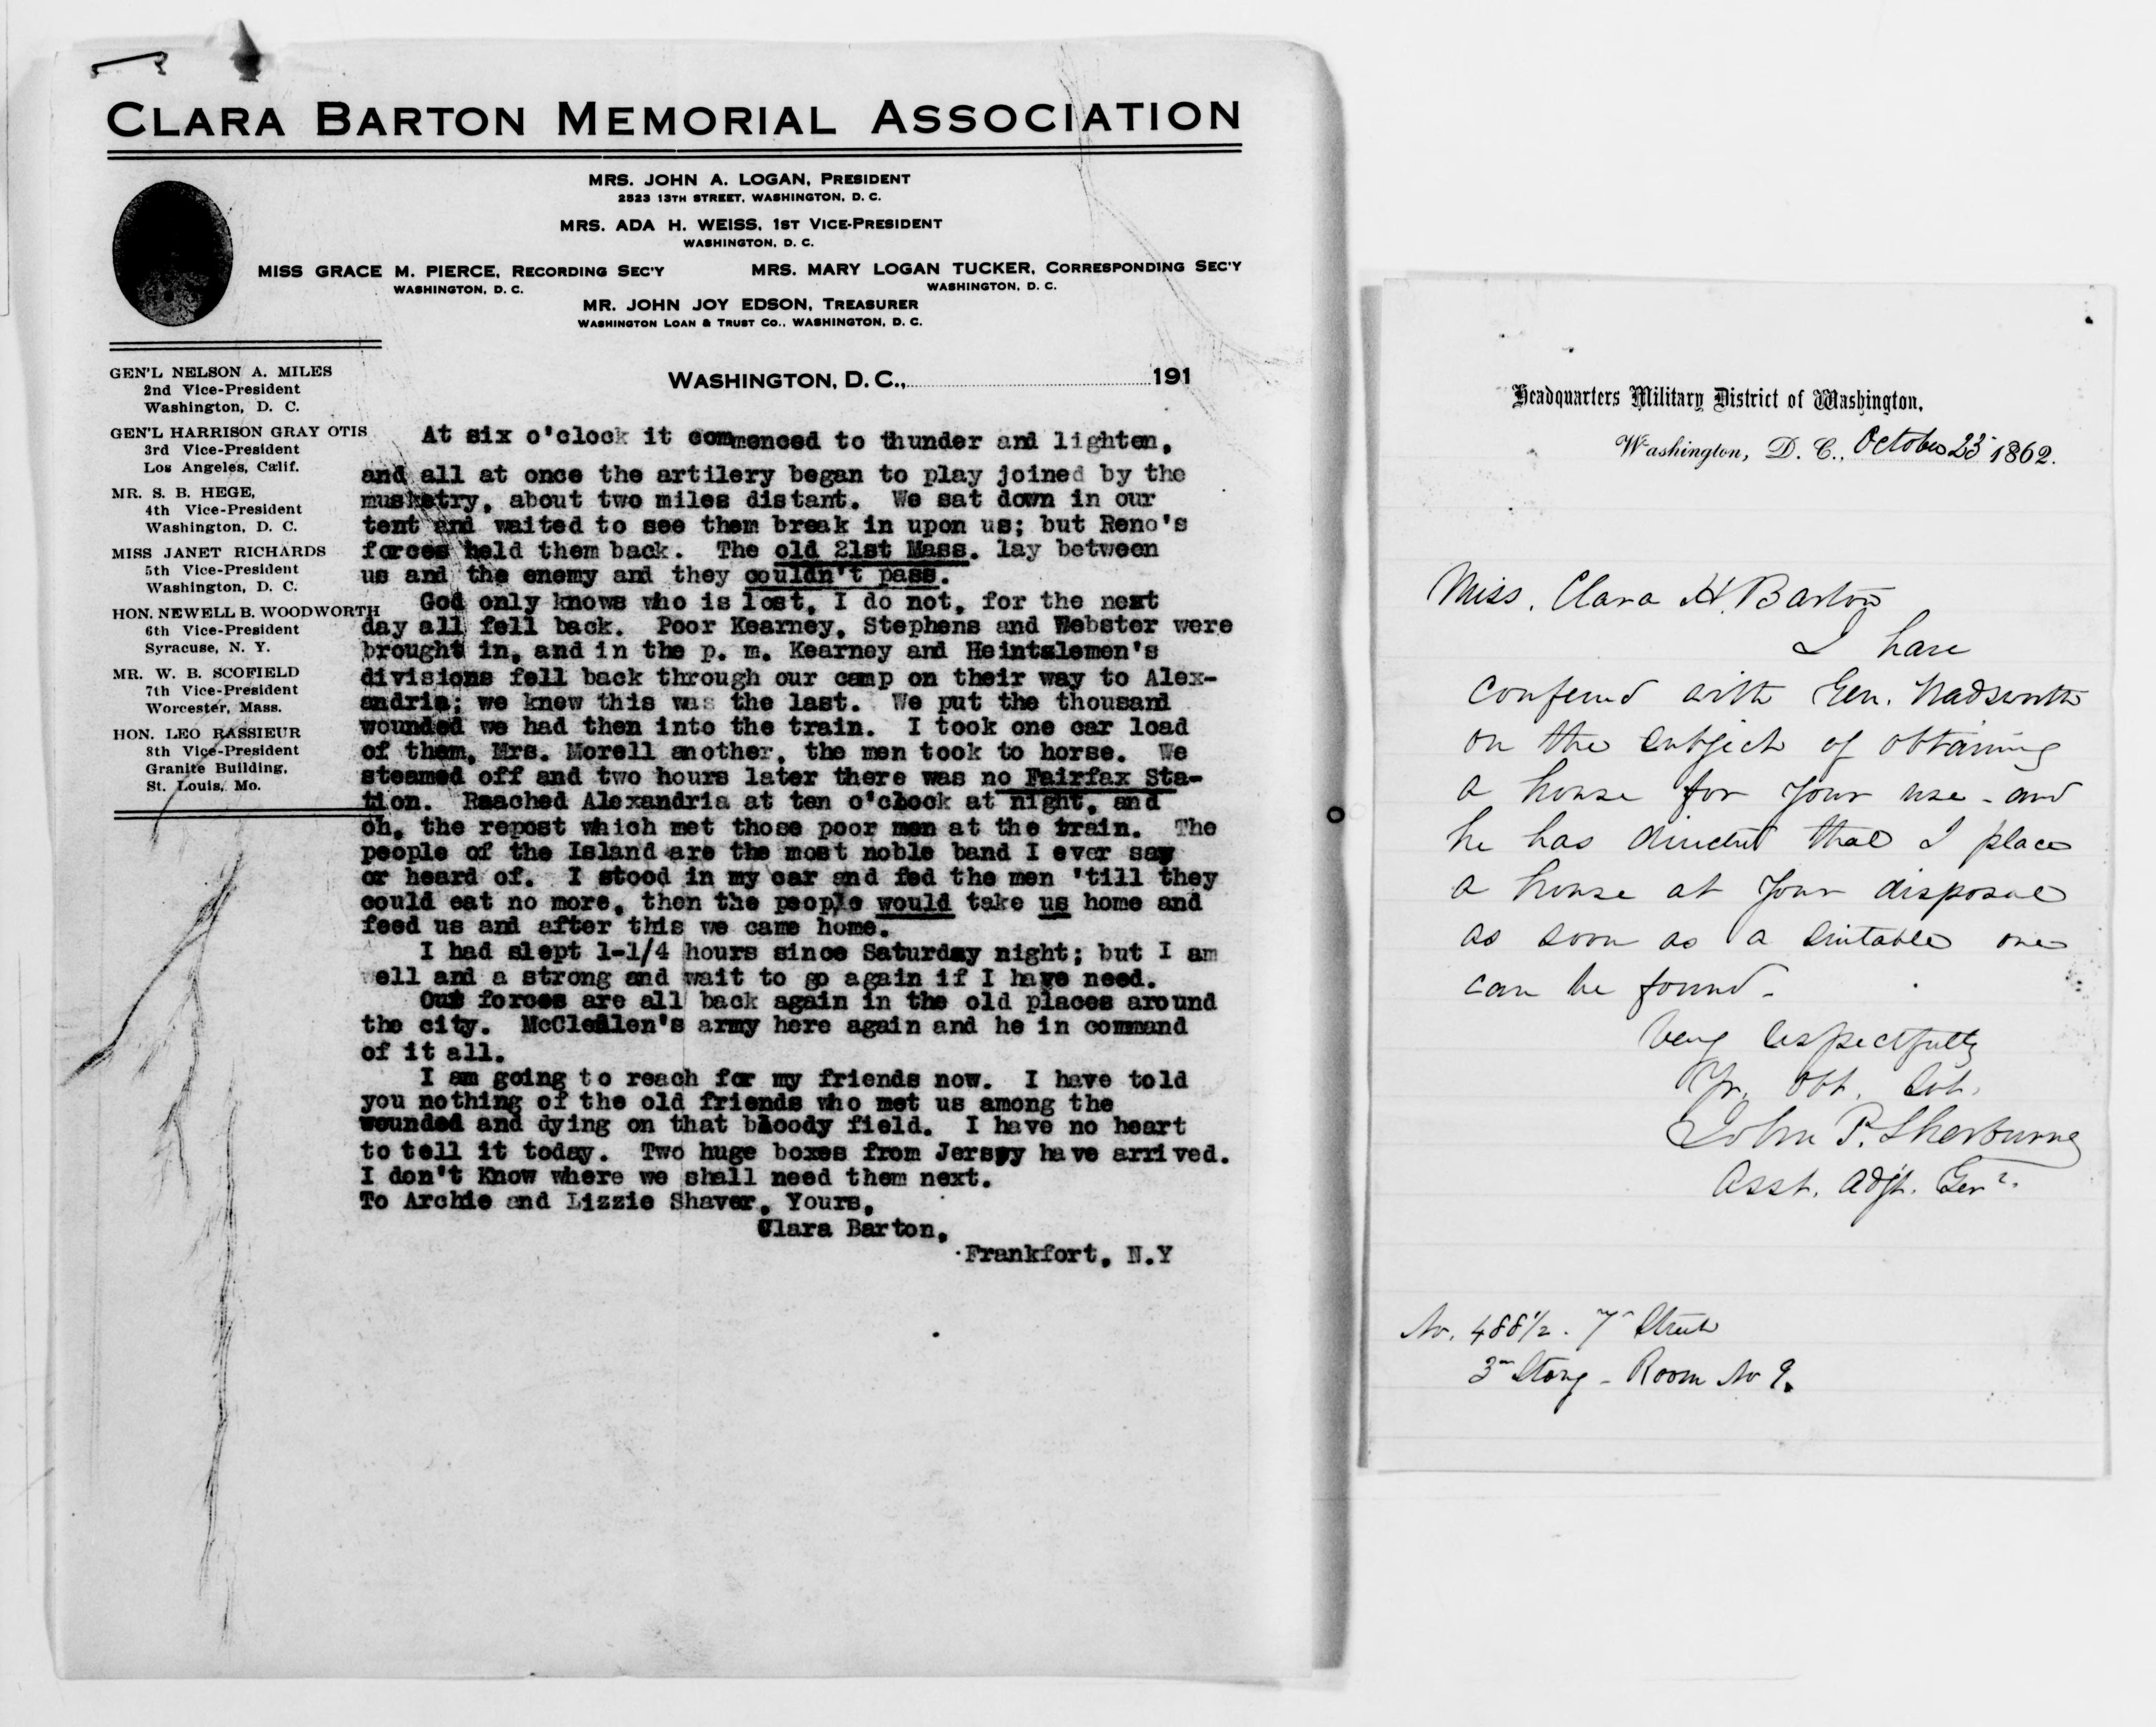 CLARA BARTON MEMORIAL ASSOCIATION
MRS. JOHN A. LOGAN, PRESIDENT
2523 13TH STREET, WASHINGTON, D. C.
MRS. ADA H. WEISS, 1ST VICE-PRESIDENT
WASHINGTON, D. C.
MISS GRACE M. PIERCE, RECORDING SEC'Y
WASHINGTON, D. C.
MRS. MARY LOGAN TUCKER, CORRESPONDING SEC'Y
WASHINGTON, D. C.
MR. JOHN JOY EDSON, TREASURER
WASHINGTON LOAN & TRUST CO., WASHINGTON, D. C.
GEN'L NELSON A. MILES
2nd Vice-President
Washington, D. C.
GEN'L HARRISON GRAY OTIS
3rd Vice-President
Los Angeles, Calif.
MR. S. B. HEGE,
4th Vice-President
Washington, D. C.
MISS JANET RICHARDS
5th Vice-President
Washington, D. C.
HON. NEWELL B. WOODWORTH
6th Vice-President
Syracuse, N. Y.
MR. W. B. SCOFIELD
7th Vice-President
Worcester, Mass.
HON. LEO RASSIEUR
8th Vice-President
Granite Building,
St. Louis, Mo.
WASHINGTON, D. C., 191
At six o'clock it commenced to thunder and lighten,
and all at once the artilery began to play joined by the
musketry, about two miles distant. We sat down in our
tent and waited to see them break in upon us; but Reno's
forces held them back. The old 21st Mass. lay between
us and the enemy and they couldn't pass.
God only knows who is lost, I do not, for the next
day all fell back. Poor Kearney, Stephens and Webster were
brought in, and in the p. m. Kearney and Heintslemen's
divisions fell back through our camp on their way to Alex-
andria; we knew this was the last. We put the thousand
wounded we had then into the train. I took one car load
of them, Mrs. Morell another, the men took to horse. We
steamed off and two hours later there was no Fairfax Sta-
tion. Reached Alexandria at ten o'clock at night, and
oh, the repost which met those poor men at the train. The
people of the Island are the most noble band I ever saw
or heard of. I stood in my car and fed the men 'till they
could eat no more, then the people would take us home and
feed us and after this we came home.
I had slept 1-1/4 hours since Saturday night; but I am
well and a strong and wait to go again if I have need.
Our forces are all back again in the old places around
the city. McClellen's army here again and he in command
of it all.
I am going to reach for my friends now. I have told
you nothing of the old friends who met us among the
wounded and dying on that bloody field. I have no heart
to tell it today. Two huge boxes from Jersey have arrived.
I don't Know where we shall need them next.
To Archie and Lizzie Shaver, Yours,
Clara Barton,
Frankfort, N.Y
Headquarters Military District of Washington,
Washington, D. C., October 23 1862.
Miss. Clara H. Barton
I have
conferred with Gen. Wadsworth
on the subject of obtaining
a house for your use - and
he has directed that I place
a house at your disposal
as soon as a suitable one
can be found -
Very respectfully
Yr. Obt. Svt.
John P. Sherburne
Asst. Adjt. Genl.
No. 488 1/2 . 7th Street
3rd Story - Room No 9.